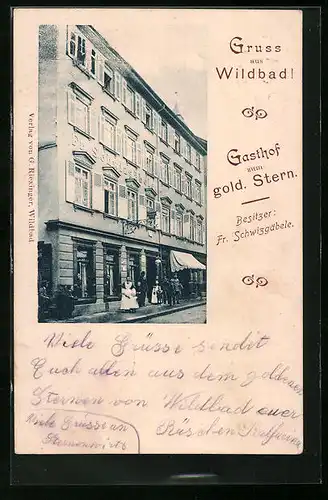 Gruss
aus
Wildbad!
Gasthof
zum
gold. Stern.
Besitzer:
Fr. Schwizgäbele.
Verlag von G. Riexinger, Wildbad
Viele Grüsse sendet
Euch allen aus dem goldenen
Sternen von Wildbad euer
Viele Grüsse an
Sternenwirts